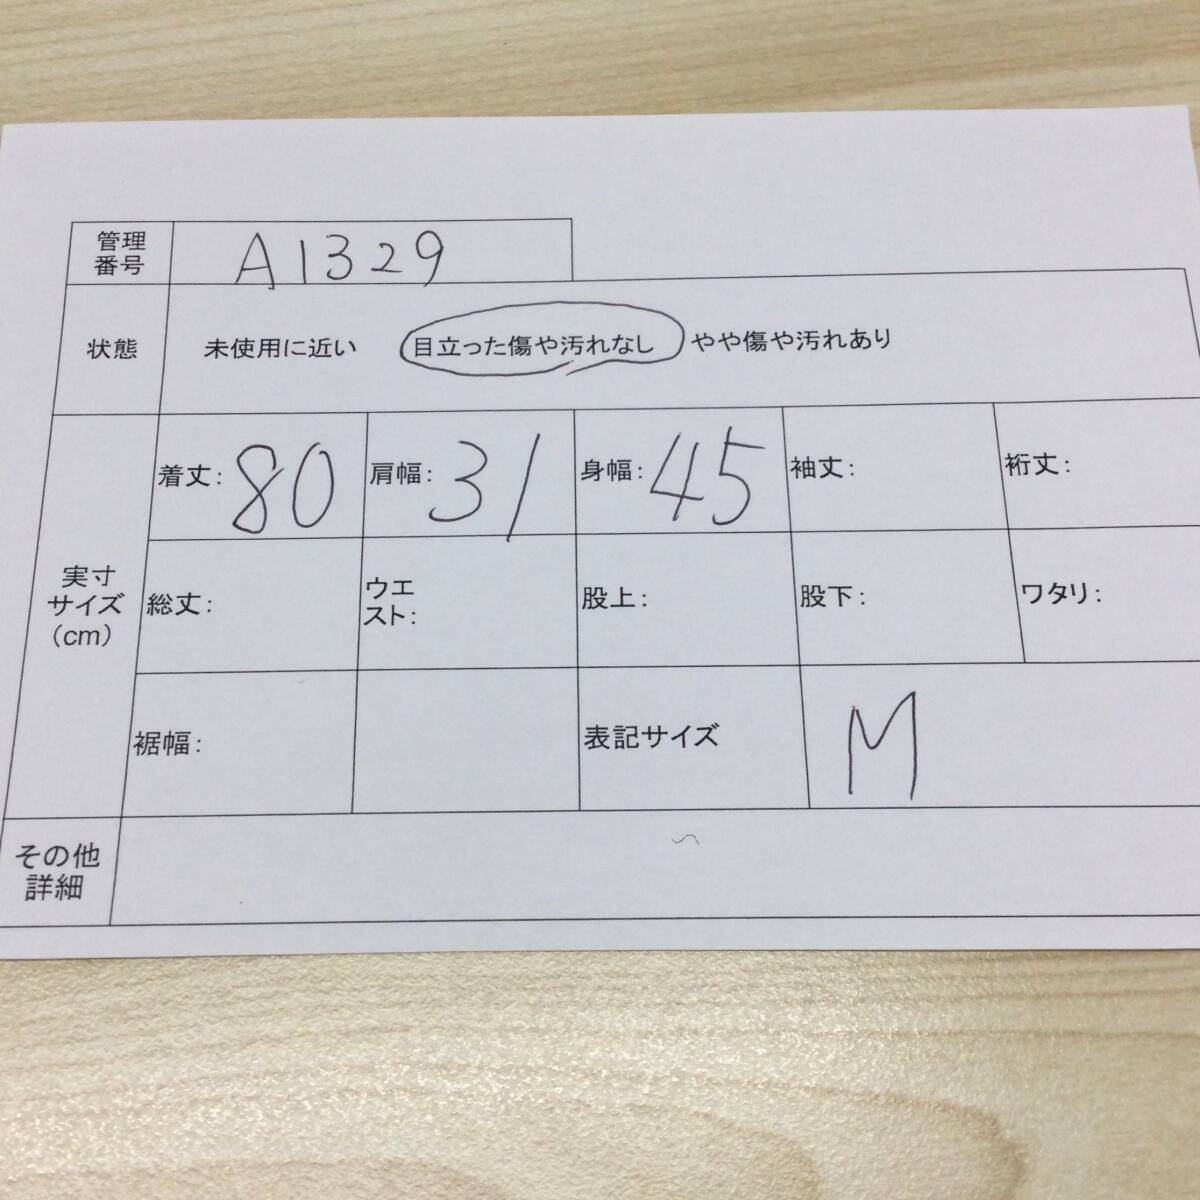 管理
番号
A1329
状態
未使用に近い 目立った傷や汚れなし やや傷や汚れあり
実寸
サイズ
(cm)
着丈: 80
肩幅: 31
身幅: 45
袖丈:
裄丈:
総丈:
ウエ
スト:
股上:
股下:
ワタリ:
裾幅:
表記サイズ
M
その他
詳細